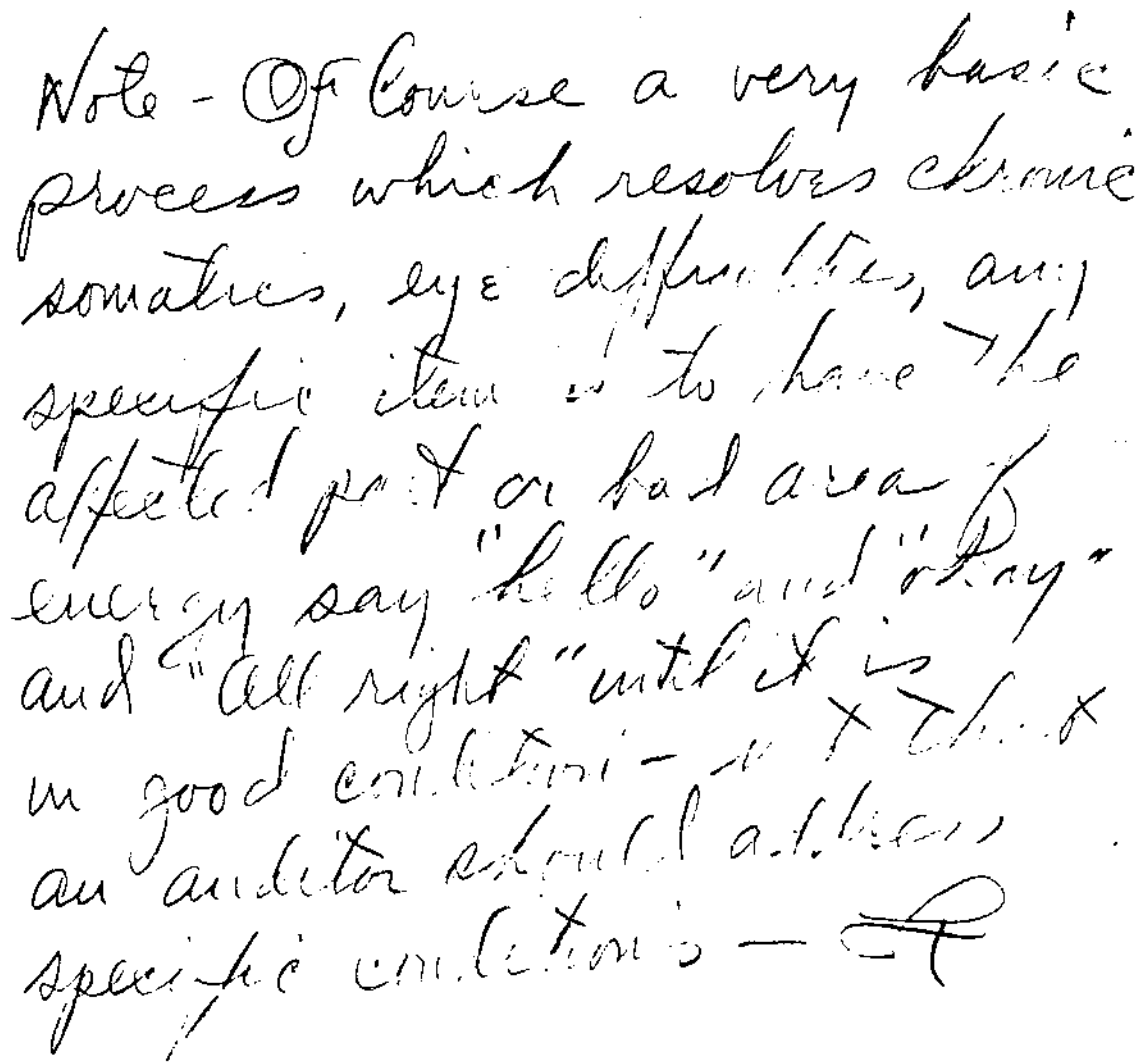 Note - Of Course a very basic
process which resolves chronic
somatics, eye difficulties, any
specific item is to have the
affected part or bad area of
energy say "hello" and "okay"
and "all right" until it is
in good condition - not that
an auditor should address
specific conditions -